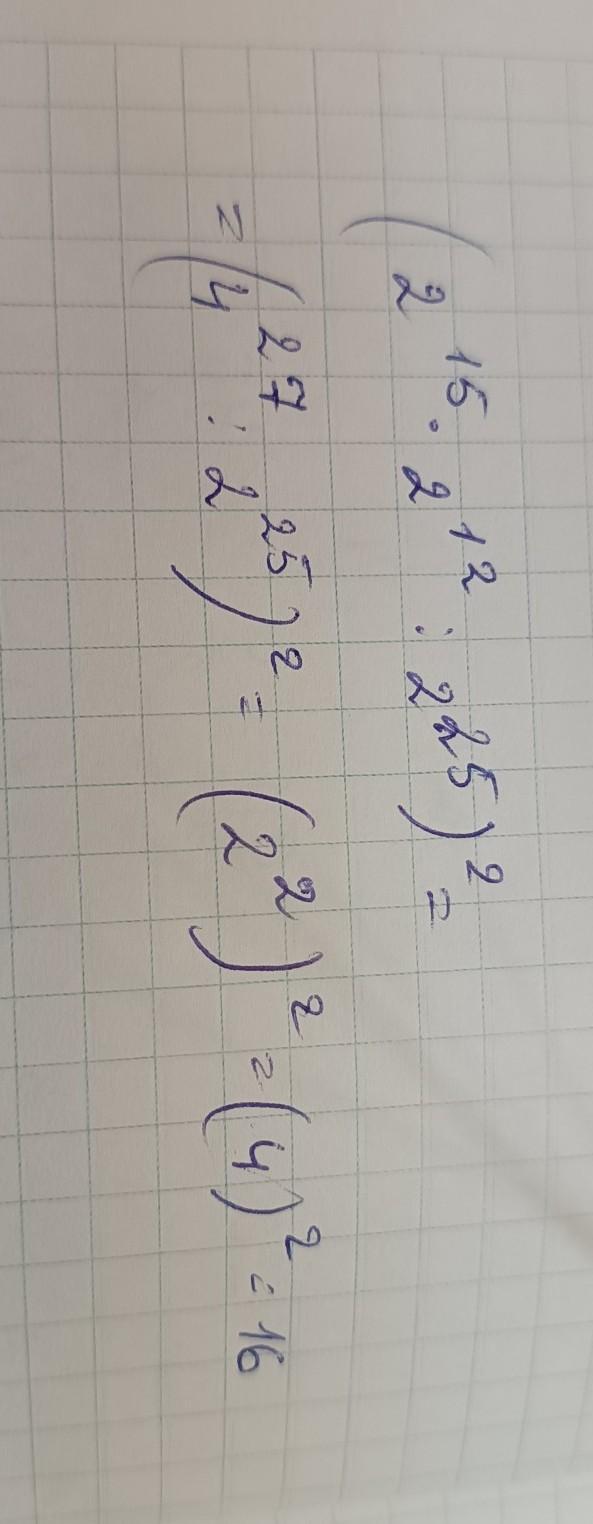 (2¹⁵ · 2¹² : 2²⁵)² =
= (4²⁷ : 2²⁵)² = (2²)² = (4)² = 16